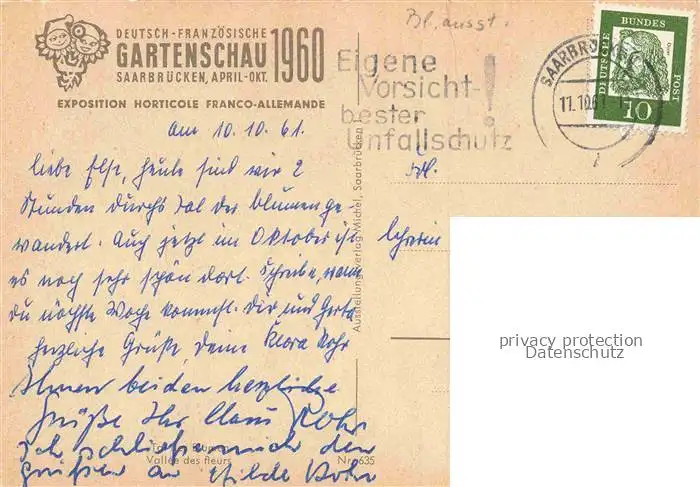 DEUTSCH-FRANZÖSISCHE
GARTENSCHAU 1960
SAARBRÜCKEN, APRIL-OKT.
EXPOSITION HORTICOLE FRANCO-ALLEMANDE
Bl. ausst.
Eigene
Vorsicht-
bester
Unfallschutz
!
SAARBRÜ
11.10.61
DEUTSCHE BUNDES POST
Dürer
10
am 10.10.61.
liebe Else, heute sind wir 2
Stunden durchs Tal der Blumen ge-
wandert. Auch jetzt im Oktober ist
es noch sehr schön dort. Schreibe, wann
du nächste Woche kommst. Dir und Gerta
herzliche Grüße, deine Klara Rohr
Ihnen beiden herzliche
Grüße Ihr Claus Rohr
Ich schließe mich den
Grüßen an Hilde Rohr
Vallée des fleurs
Nr. 635
Ausstellungsverlag Michel, Saarbrücken 1
privacy protection
Datenschutz